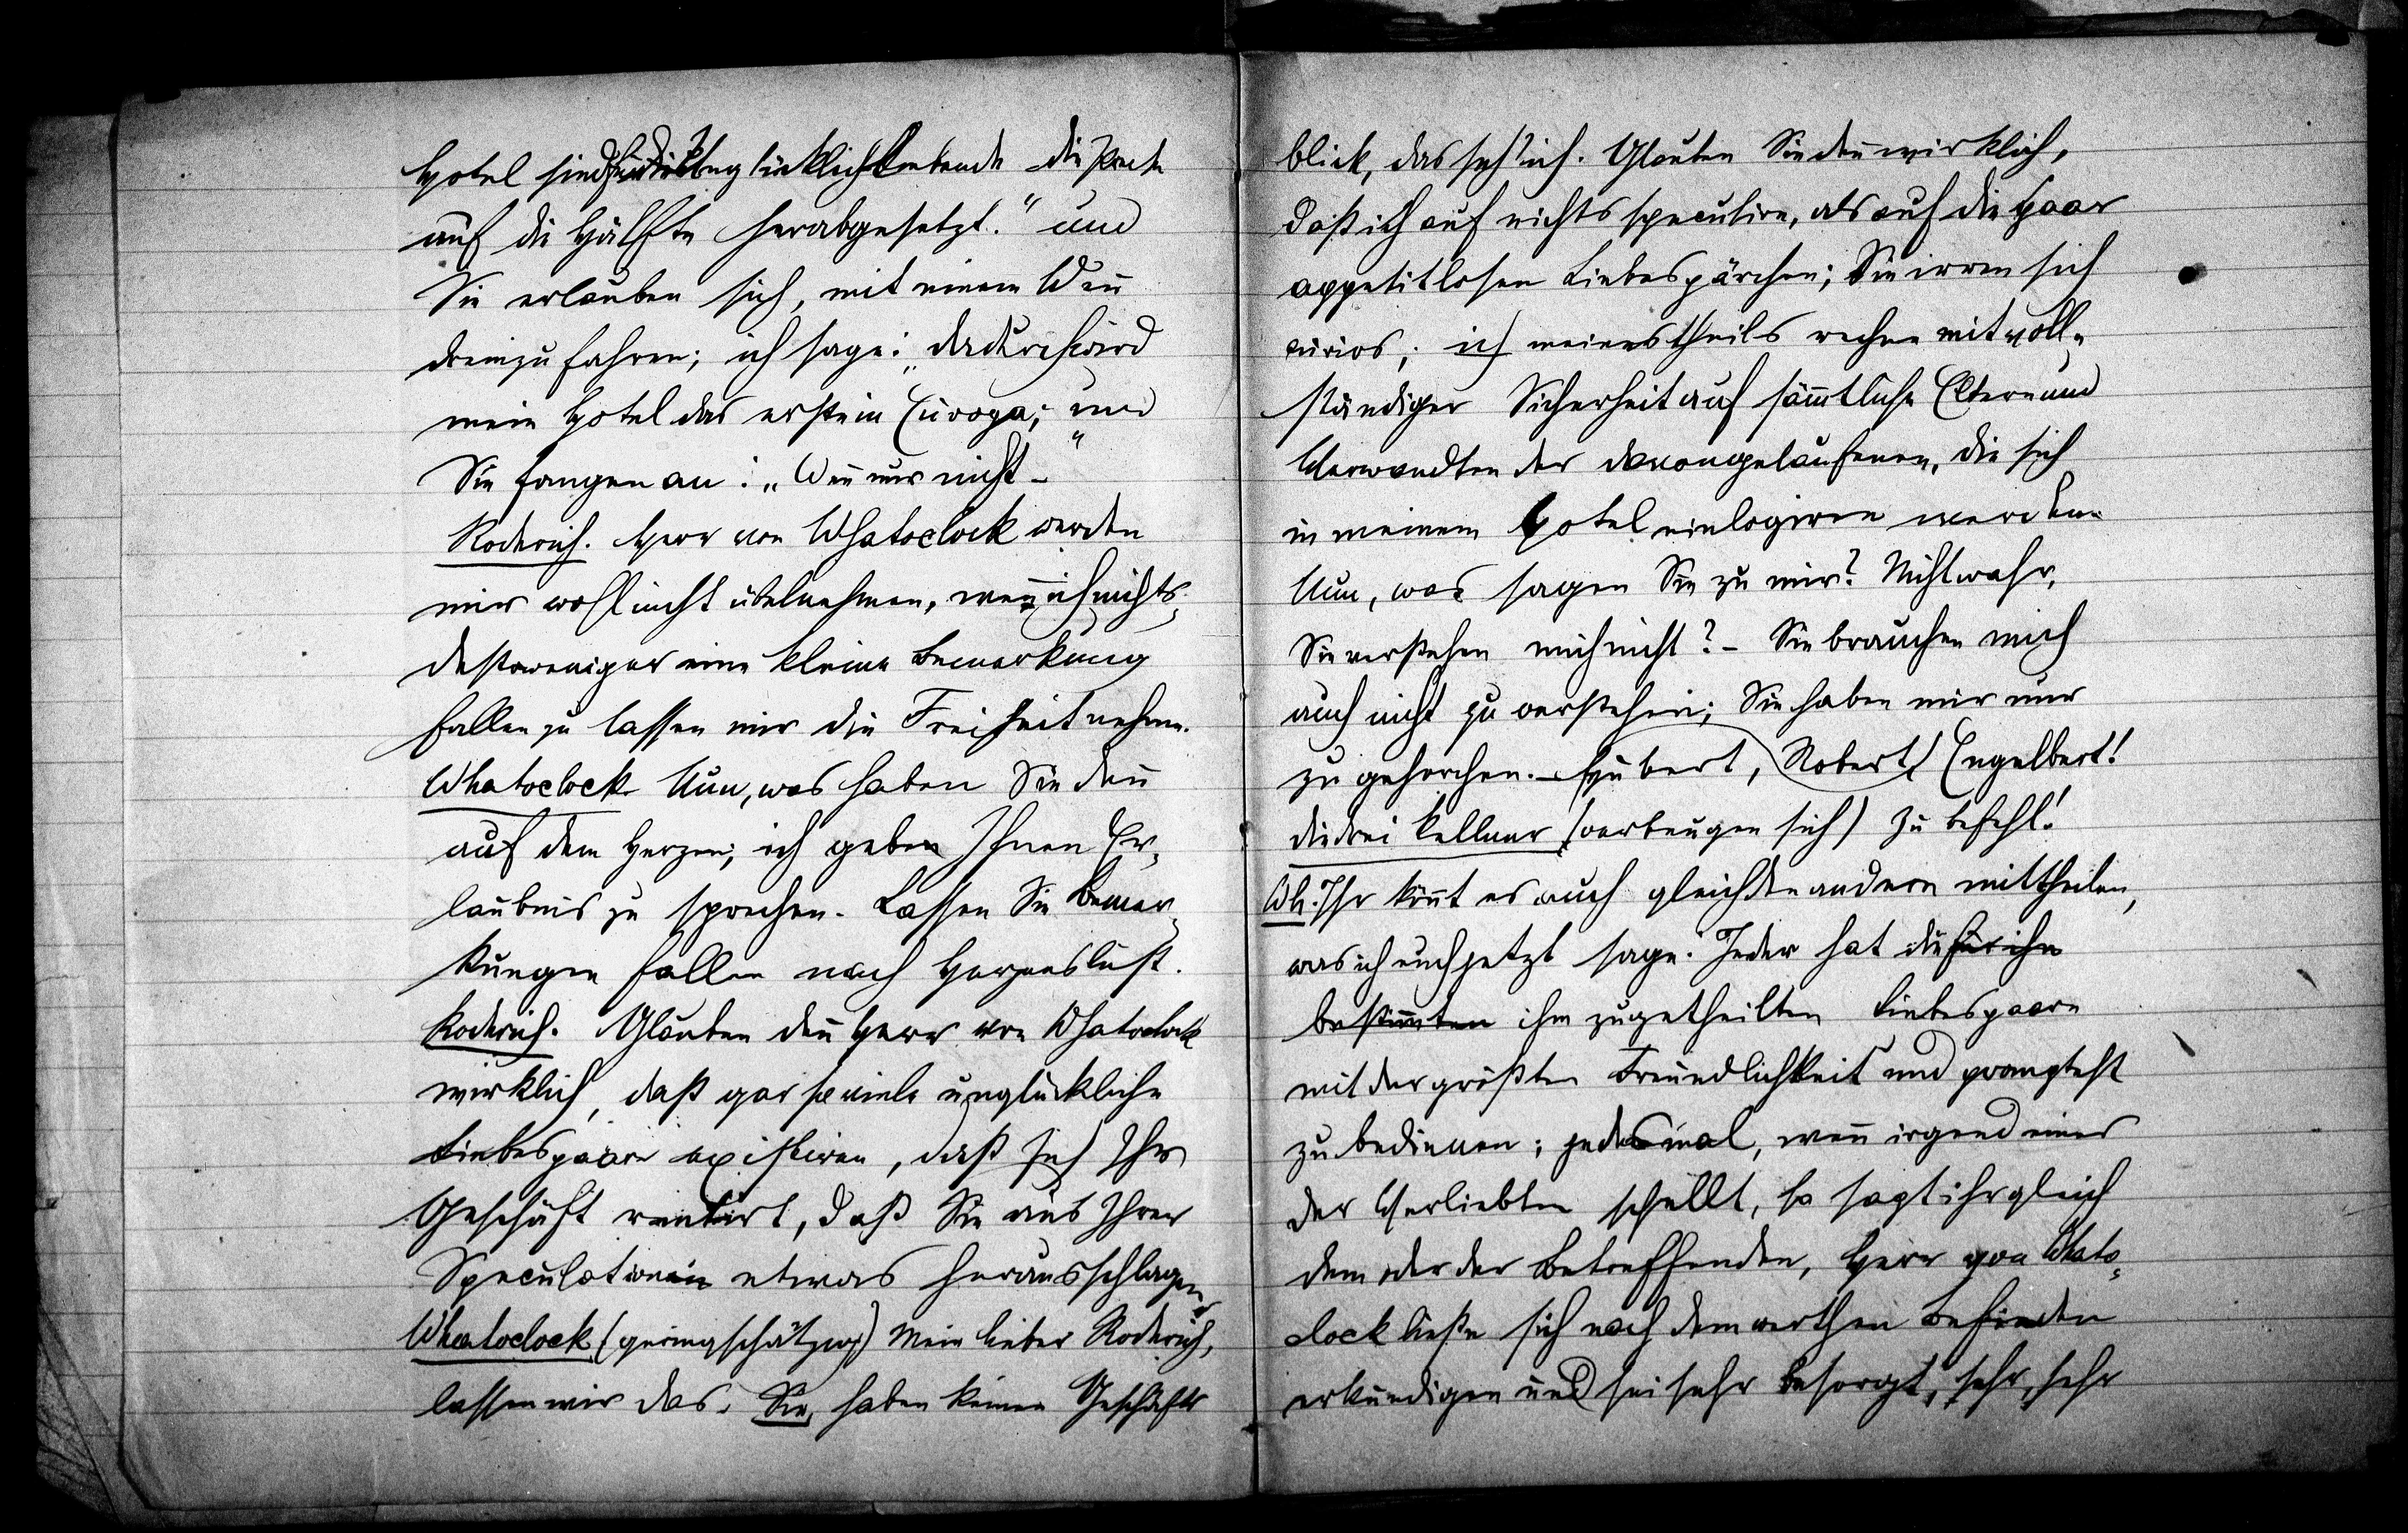 Hotel sind für unglücklich Liebende die Preise
auf die Hälfte herabgesetzt." und
Sie erlauben sich, mit einem Weñ
dreinzufahren; ich sage: „dadurch wird
mein Hotel das erste in Europa;" und
Sie fangen an: „Weñ nur nicht –"
Roderich. Herr von Whatoclock werden
mir wohl nicht übelnehmen, weñ ich nichts-
destoweniger eine kleine Bemerkung
fallen zu lassen mir die Freiheit nehme.
Whatoclock Nun, was haben Sie deñ
auf dem Herzen; ich gebe Ihnen Er-
laubnis zu sprechen. Lassen Sie Bemer-
kungen fallen nach Herzenslust.
Roderich. Glauben deñ Herr von Whatoclock
wirklich, daß gar so viele unglückliche
Liebespaare existiren, daß sich Ihr
Geschäft rentirt, daß Sie aus Ihrer
Speculation etwas herausschlagen?
Whatoclock (geringschätzig) Mein lieber Roderich,
lassen wir das. Sie haben keinen Geschäfts
blick, das seh' ich. Glauben Sie deñ wirklich,
daß ich auf nichts speculire, als auf die paar
appetitlosen Liebespärchen; Sie irren sich
curios; ich meinestheils rechne mit voll-
ständiger Sicherheit auf sämtliche Eltern und
Verwandten der davongelaufenen, die sich
in meinem Hotel einlogiren werden.
Nun, was sagen Sie zu mir? Nicht wahr,
Sie verstehen mich nicht? – Sie brauchen mich
auch nicht zu verstehen; Sie haben mir nur
zu gehorchen. – Hubert, Robert, Engelbert!
die drei Kellner (verbeugen sich) Zu Befehl!
Wh. Ihr köñt es auch gleich den andern mittheilen,
was ich euch jetzt sage: Jeder hat die für ihn
bestim̃ten ihm zugetheilten Liebespaare
mit der größten Freundlichkeit und promptest
zu bedienen; jedesmal, weñ irgend eines
der Verliebten schellt, so sagt ihr gleich
dem oder der Betreffenden, Herr von Whato-
clock ließe sich nach dem werthen Befinden
erkundigen und sei sehr besorgt, sehr, sehr